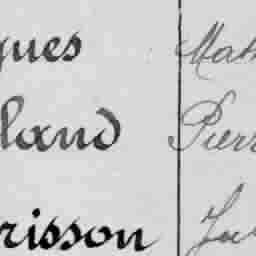 ques Math
land Pierr
risson Ja